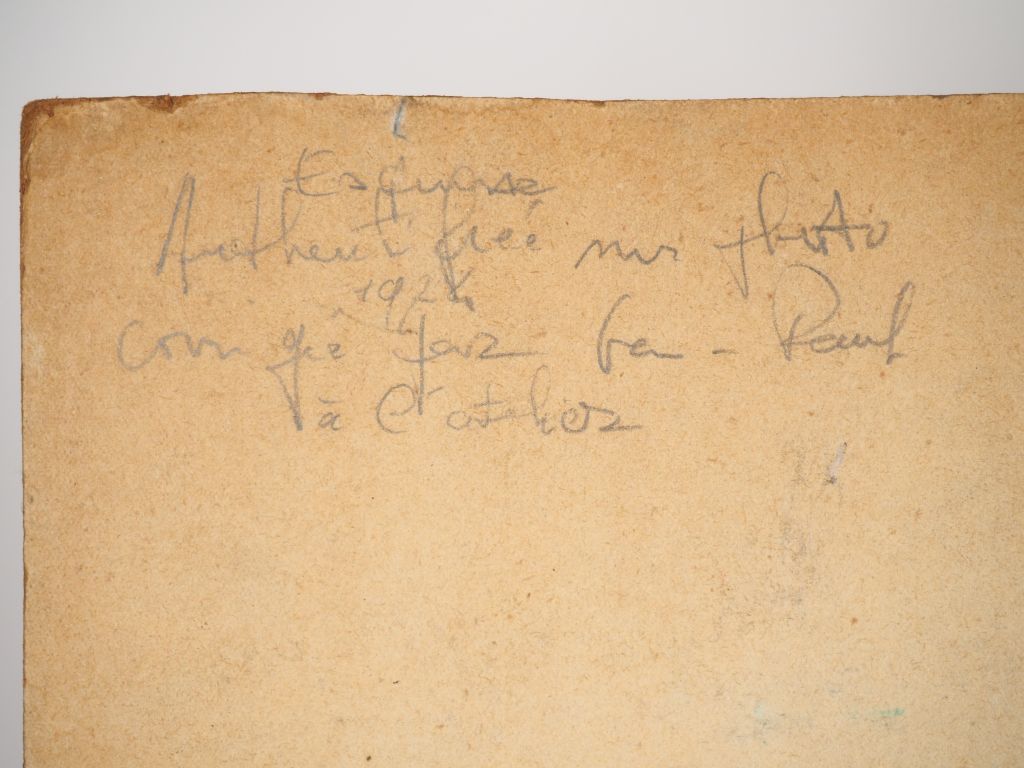 Esquisse
Authentifiée sur photo
1924
corrigé par Gen-Paul
à l'atelier